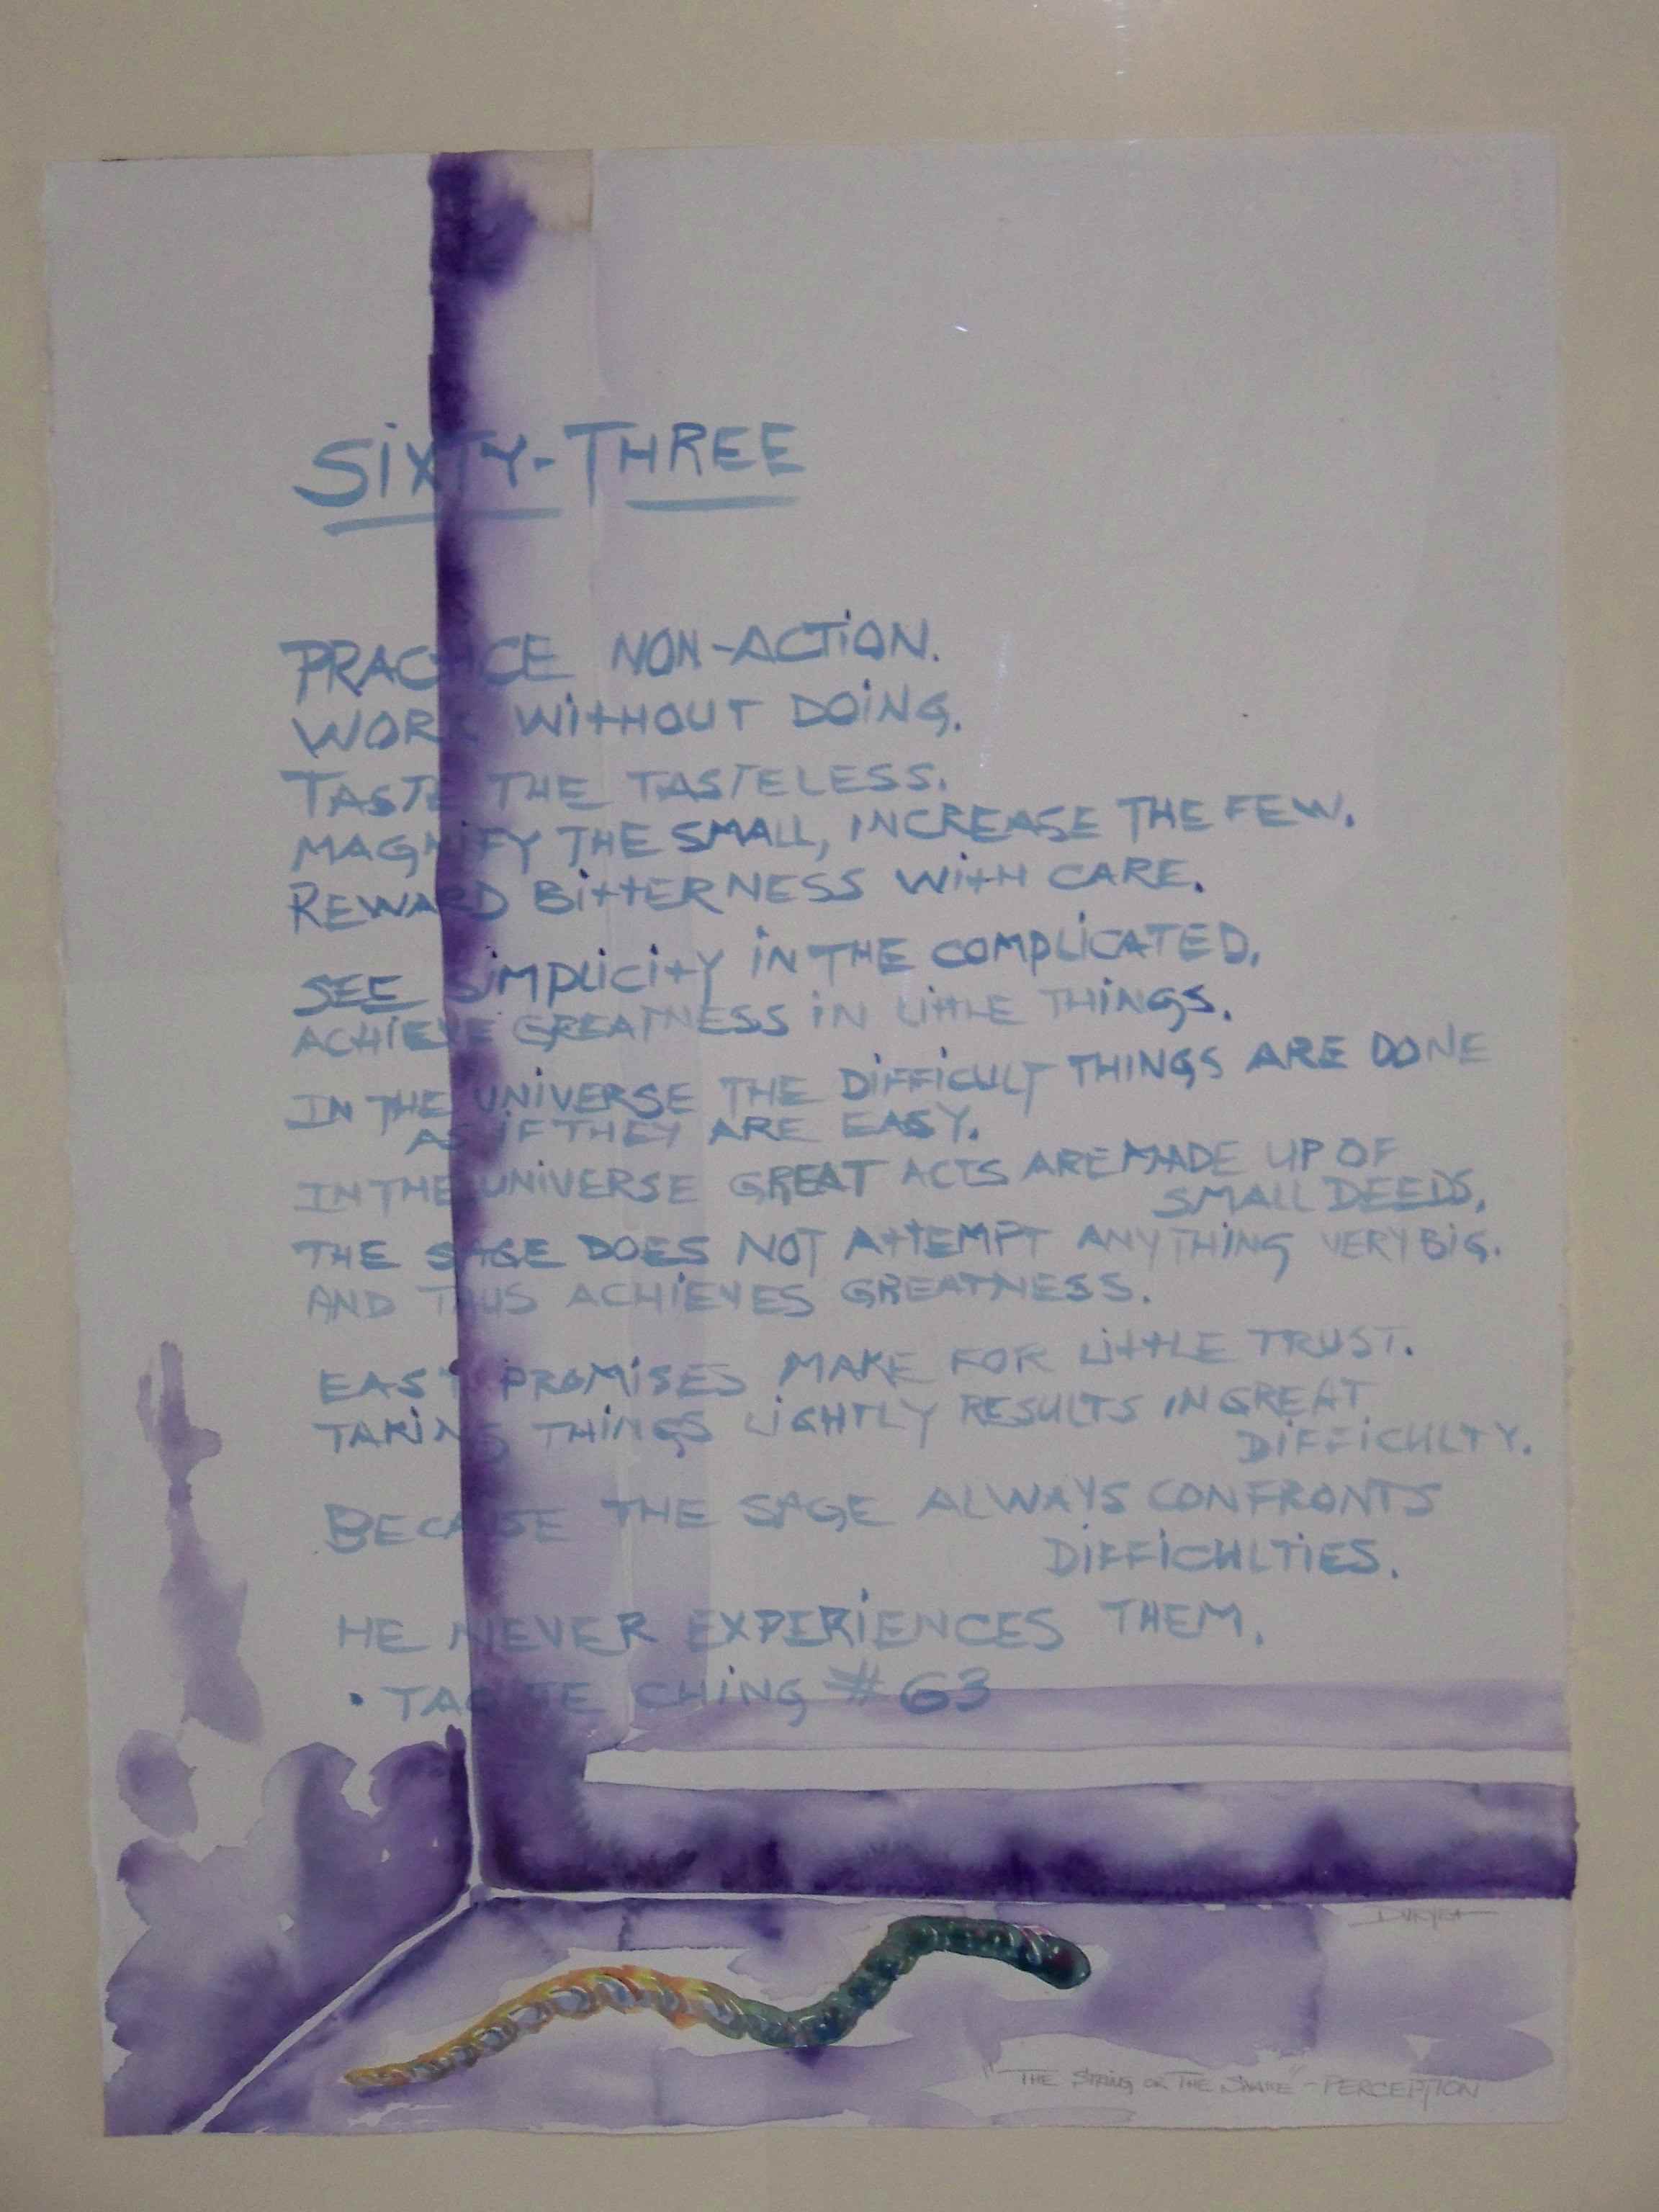 SIXTY-THREE
PRACTICE NON-ACTION.
WORK WITHOUT DOING.
TASTE THE TASTELESS.
MAGNIFY THE SMALL, INCREASE THE FEW.
REWARD BITTERNESS WITH CARE.
SEE SIMPLICITY IN THE COMPLICATED.
ACHIEVE GREATNESS IN LITTLE THINGS.
IN THE UNIVERSE THE DIFFICULT THINGS ARE DONE
AS IF THEY ARE EASY.
IN THE UNIVERSE GREAT ACTS ARE MADE UP OF
SMALL DEEDS.
THE SAGE DOES NOT ATTEMPT ANYTHING VERY BIG.
AND THUS ACHIEVES GREATNESS.
EASY PROMISES MAKE FOR LITTLE TRUST.
TAKING THINGS LIGHTLY RESULTS IN GREAT
DIFFICULTY.
BECAUSE THE SAGE ALWAYS CONFRONTS
DIFFICULTIES.
HE NEVER EXPERIENCES THEM.
• TAO TE CHING #63
"THE STRING OR THE SNAKE" - PERCEPTION